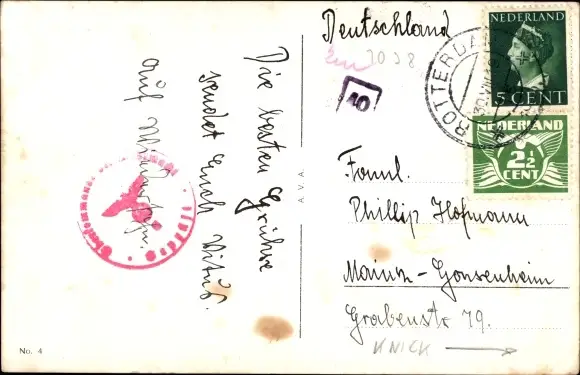 Die besten Grüße
sendet Euch Vitus.
Auf Wiedersehn.
No. 4
AVA
Deutschland
1038
10
NEDERLAND
5 CENT
ROTTERDAM
NEDERLAND
2½
CENT
Faml.
Phillip Hofmann
Mainz-Gonsenheim
Grabenstr. 79.
KNICK